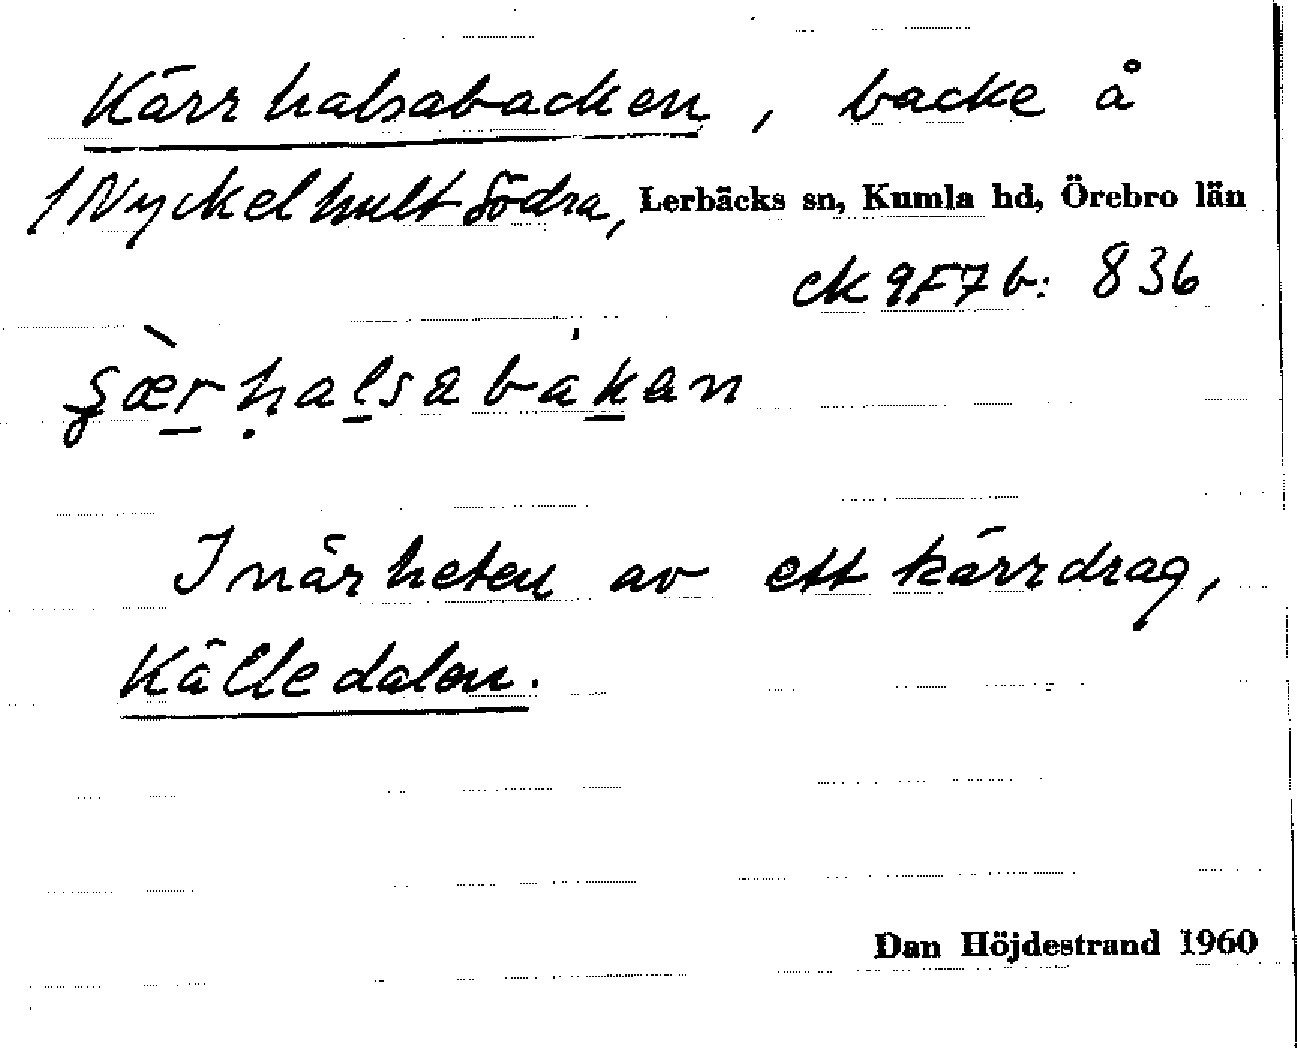 Kärrhalsabacken, backe å
1 Nyckelhult Södra, Lerbäcks sn, Kumla hd, Örebro län
ek 9F7b: 836
I närheten av ett kärrdrag,
Källedalen.
Dan Höjdestrand 1960